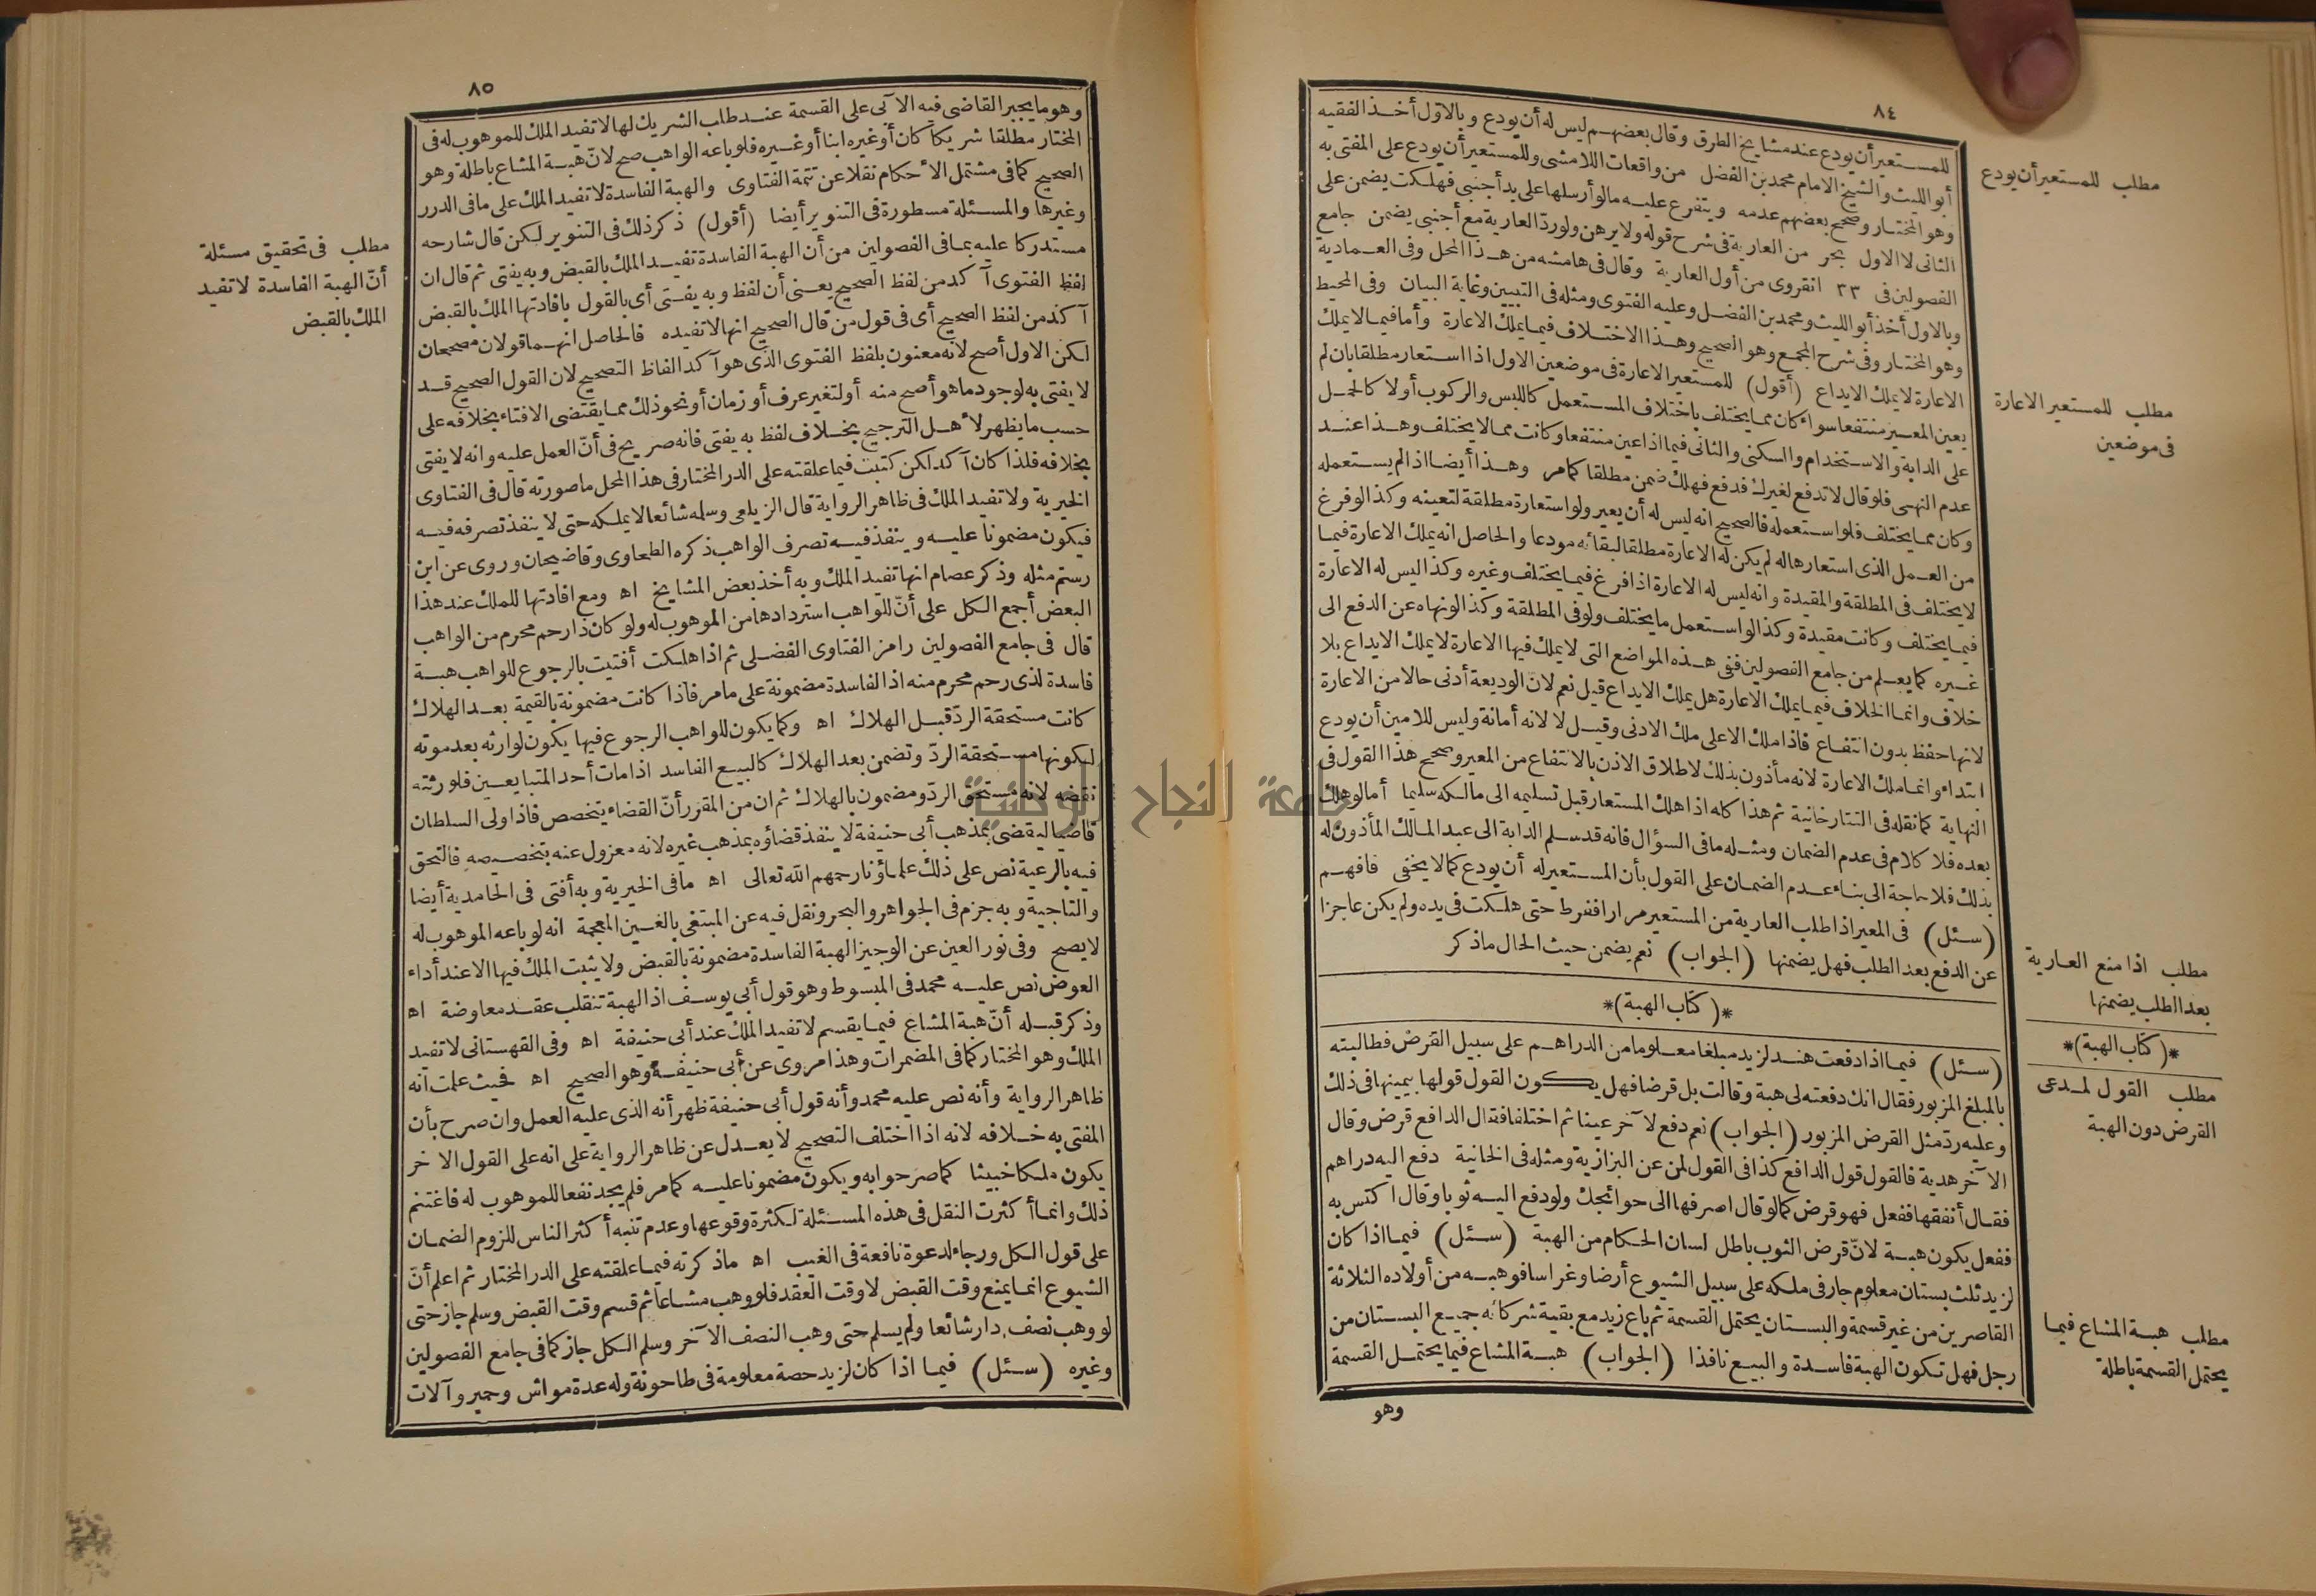 ٨٤
للمستعير أن يودع عند مشايخ الطرق وقال بعضهم ليس له أن يودع وبالاول أخذ الفقيه
أبو الليث والشيخ الامام محمد بن الفضل من واقعات اللامشى وللمستعير أن يودع على المفتى به
وهو المختار وصحح بعضهم عدمه ويتفرع عليه مالو أرسلها على يد أجنبي فهلكت يضمن على
الثانى لا الاول بحر من العارية فى شرح قوله ولا يرهن ولو ردّ العارية مع أجنبي يضمن جامع
الفصولين فى ٣٣ انقروى من أول العارية وقال فى هامشه من هذا المحل وفى العمادية
وبالاول أخذ أبو الليث ومحمد بن الفضل وعليه الفتوى ومثله فى التبيين وغاية البيان وفى المحيط
وهو المختار وفى شرح المجمع وهو الصحيح وهذا الاختلاف فيما يملك الاعارة وأما فيما لا يملك
الاعارة لا يملك الايداع (أقول) للمستعير الاعارة فى موضعين الاول اذا استعار مطلقا بان لم
يعين المعير منتفعا سواء كان مما يختلف باختلاف المستعمل كاللبس والركوب أولا كالحمل
على الدابة والاستخدام والسكنى والثانى فيما اذا عين منتفعا وكانت مما لا يختلف وهذا عند
عدم النهى فلو قال لا تدفع لغيرك فدفع فهلك ضمن مطلقا كما مر وهذا أيضا اذا لم يستعمله
وكان مما يختلف فلو استعمله فالصحيح انه ليس له أن يعير ولو استعارة مطلقة لتعينه وكذا لو فرغ
من العمل الذى استعارها له لم يكن له الاعارة مطلقا لبقائه مودعا والحاصل انه يملك الاعارة فيما
لا يختلف فى المطلقة والمقيدة وانه ليس له الاعارة اذا فرغ فيما يختلف وغيره وكذا ليس له الاعارة
فيما يختلف وكانت مقيدة وكذا لو استعمل ما يختلف ولو فى المطلقة وكذا لو نهاه عن الدفع الى
غيره كما يعلم من جامع الفصولين ففى هذه المواضع التى لا يملك فيها الاعارة لا يملك الايداع بلا
خلاف وانما الخلاف فيما يملك الاعارة هل يملك الايداع قيل نعم لان الوديعة أدنى حالا من الاعارة
لانها حفظ بدون انتفاع فاذا ملك الاعلى ملك الادنى وقيل لا لانه أمانة وليس للامين أن يودع
ابتداء وانما ملك الاعارة لانه مأذون بذلك لاطلاق الاذن بالانتفاع من المعير وصحح هذا القول فى
النهاية كما نقله فى التتارخانية ثم هذا كله اذا هلك المستعار قبل تسليمه الى مالكه سليما أما لو هلك
بعده فلا كلام فى عدم الضمان ومثله ما فى السؤال فانه قد سلم الدابة الى عبد المالك المأذون له
بذلك فلا حاجة الى بناء عدم الضمان على القول بأن المستعير له أن يودع كما لا يخفى فافهم
(سئل) فى المعير اذا طلب العارية من المستعير مرارا ففرط حتى هلكت فى يده ولم يكن عاجزا
عن الدفع بعد الطلب فهل يضمنها (الجواب) نعم يضمن حيث الحال ما ذكر
*(كتاب الهبة)*
(سئل) فيما اذا دفعت هند لزيد مبلغا معلوما من الدراهم على سبيل القرض فطالبته
بالمبلغ المزبور فقال انك دفعته لى هبة وقالت بل قرضا فهل يكون القول قولها بيمينها فى ذلك
وعليه ردّ مثل القرض المزبور (الجواب) نعم دفع لآخر عينا ثم اختلفا فقال الدافع قرض وقال
الآخر هدية فالقول قول الدافع كذا فى القول لمن عن البزازية ومثله فى الخانية دفع اليه دراهم
فقال أنفقها ففعل فهو قرض كما لو قال اصرفها الى حوائجك ولو دفع اليه ثوبا وقال اكتس به
ففعل يكون هبة لانّ قرض الثوب باطل لسان الحكام من الهبة (سئل) فيما اذا كان
لزيد ثلث بستان معلوم جار فى ملكه على سبيل الشيوع أرضا وغراسا فوهبه من أولاده الثلاثة
القاصرين من غير قسمة والبستان يحتمل القسمة ثم باع زيد مع بقية شركائه جميع البستان من
رجل فهل تكون الهبة فاسدة والبيع نافذا (الجواب) هبة المشاع فيما يحتمل القسمة
وهو
مطلب للمستعير أن يودع
مطلب للمستعير الاعارة
فى موضعين
مطلب اذا منع العارية
بعد الطلب يضمنها
*(كتاب الهبة)*
مطلب القول لمدعى
القرض دون الهبة
مطلب هبة المشاع فيما
يحتمل القسمة باطلة
٨٥
وهو ما يجبر القاضى فيه الآبى على القسمة عند طلب الشريك لها لا تفيد الملك للموهوب له فى
المختار مطلقا شريكا كان أو غيره ابنا أو غيره فلو باعه الواهب صح لانّ هبة المشاع باطلة وهو
الصحيح كما فى مشتمل الأحكام نقلا عن تتمة الفتاوى والهبة الفاسدة لا تفيد الملك على ما فى الدرر
وغيرها والمسئلة مسطورة فى التنوير أيضا (أقول) ذكر ذلك فى التنوير لكن قال شارحه
مستدركا عليه بما فى الفصولين من أن الهبة الفاسدة تفيد الملك بالقبض وبه يفتى ثم قال ان
لفظ الفتوى آكد من لفظ الصحيح يعنى أن لفظ وبه يفتى أى بالقول بافادتها الملك بالقبض
آكد من لفظ الصحيح أى فى قول من قال الصحيح انها لا تفيده فالحاصل انهما قولان مصححان
لكن الاول أصح لانه معنون بلفظ الفتوى الذى هو آكد الفاظ التصحيح لان القول الصحيح قد
لا يفتى به لوجود ما هو أصح منه أو لتغير عرف أو زمان أو نحو ذلك مما يقتضى الافتاء بخلافه على
حسب ما يظهر لأهل الترجيح بخلاف لفظ به يفتى فانه صريح فى أنّ العمل عليه وانه لا يفتى
بخلافه فلذا كان آكد لكن كتبت فيما علقته على الدر المختار فى هذا المحل ما صورته قال فى الفتاوى
الخيرية ولا تفيد الملك فى ظاهر الرواية قال الزيلعى وسلمه شائعا لا يملكه حتى لا ينفذ تصرفه فيه
فيكون مضمونا عليه وينفذ فيه تصرف الواهب ذكره الطحاوى وقاضيخان وروى عن ابن
رستم مثله وذكر عصام انها تفيد الملك وبه أخذ بعض المشايخ اه ومع افادتها للملك عند هذا
البعض أجمع الكل على أنّ للواهب استردادها من الموهوب له ولو كان ذا رحم محرم من الواهب
قال فى جامع الفصولين رامزا الفتاوى الفضلى ثم اذا هلكت أفتيت بالرجوع للواهب هبة
فاسدة لذى رحم محرم منه اذ الفاسدة مضمونة على ما مر فاذا كانت مضمونة بالقيمة بعد الهلاك
كانت مستحقة الردّ قبل الهلاك اه وكما يكون للواهب الرجوع فيها يكون لوارثه بعد موته
لكونها مستحقة الردّ وتضمن بعد الهلاك كالبيع الفاسد اذا مات أحد المتبايعين فلورثته
نقضه لانه مستحق الردّ ومضمون بالهلاك ثم ان من المقرر أنّ القضاء يتخصص فاذا ولى السلطان
قاضيا ليقضى بمذهب أبى حنيفة لا ينفذ قضاؤه بمذهب غيره لانه معزول عنه بتخصيصه فالتحق
فيه بالرعية نص على ذلك علماؤنا رحمهم الله تعالى اه ما فى الخيرية وبه أفتى فى الحامدية أيضا
والتاجية وبه جزم فى الجواهر والبحر ونقل فيه عن المبتغى بالغين المعجمة انه لو باعه الموهوب له
لا يصح وفى نور العين عن الوجيز الهبة الفاسدة مضمونة بالقبض ولا يثبت الملك فيها الا عند أداء
العوض نص عليه محمد فى المبسوط وهو قول أبى يوسف اذ الهبة تنقلب عقد معاوضة اه
وذكر قبله أنّ هبة المشاع فيما يقسم لا تفيد الملك عند أبى حنيفة اه وفى القهستانى لا تفيد
الملك وهو المختار كما فى المضمرات وهذا مروى عن أبى حنيفة وهو الصحيح اه فحيث علمت أنه
ظاهر الرواية وأنه نص عليه محمد وأنه قول أبى حنيفة ظهر أنه الذى عليه العمل وان صرح بأن
المفتى به خلافه لانه اذا اختلف التصحيح لا يعدل عن ظاهر الرواية على انه على القول الآخر
يكون ملكا خبيثا كما صرحوا به ويكون مضمونا عليه كما مر فلم يجد نفعا للموهوب له فاغتنم
ذلك وانما أكثرت النقل فى هذه المسئلة لكثرة وقوعها وعدم تنبه أكثر الناس للزوم الضمان
على قول الكل ورجاء لدعوة نافعة فى الغيب اه ما ذكرته فيما علقته على الدر المختار ثم اعلم أنّ
الشيوع انما يمنع وقت القبض لا وقت العقد فلو وهب مشاعا ثم قسم وقت القبض وسلم جاز حتى
لو وهب نصف دار شائعا ولم يسلم حتى وهب النصف الآخر وسلم الكل جاز كما فى جامع الفصولين
وغيره (سئل) فيما اذا كان لزيد حصة معلومة فى طاحونة وله عدة مواش وحمير وآلات
مطلب فى تحقيق مسئلة
أنّ الهبة الفاسدة لا تفيد
الملك بالقبض
جامعة النجاح الوطنية